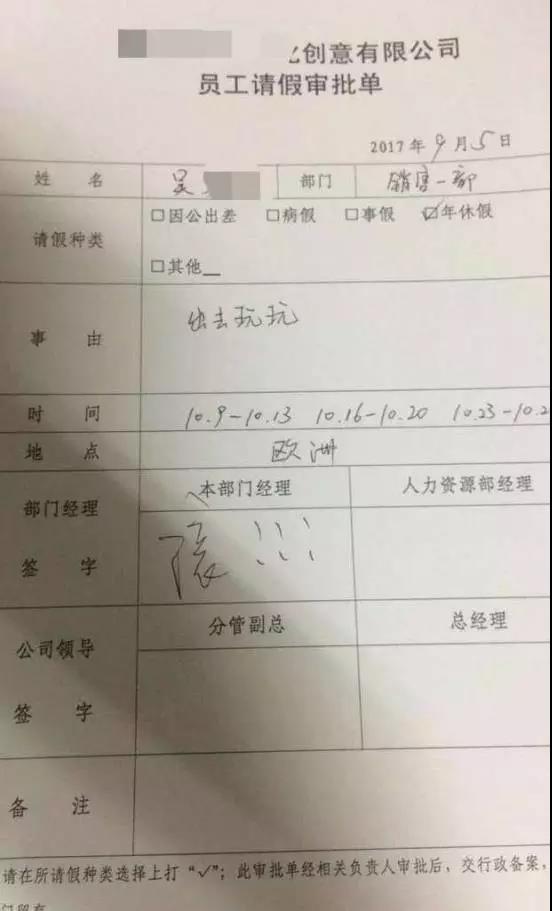 创意有限公司
员工请假审批单
2017年9月5日
姓名 吴 部门 销售一部
请假种类 □因公出差 □病假 □事假 ☑年休假
□其他__
事由 出去玩玩
时间 10.9-10.13 10.16-10.20 10.23-10.2
地点 欧洲
部门经理签字 本部门经理 人力资源部经理
!!!
公司领导签字 分管副总 总经理
备注
请在所请假种类选择上打“√”；此审批单经相关负责人审批后，交行政备案，
门留存